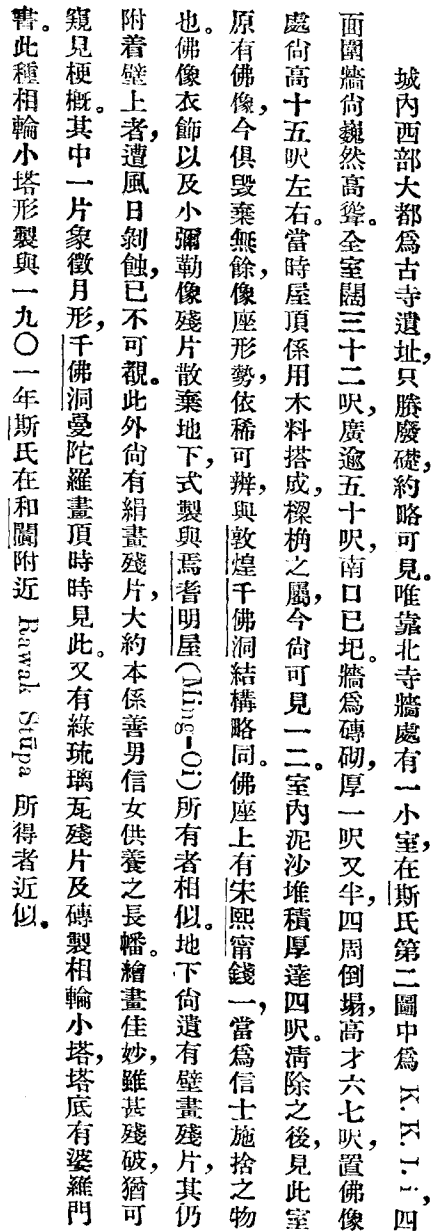 城內西部大都爲古寺遺址，只賸廢礎，約略可見。唯靠北寺牆處有一小室，在斯氏第二圖中爲 K. K. I. i，四
面圍牆尙巍然高聳。全室闊三十二呎，廣逾五十呎，南口已圮。牆爲磚砌，厚一呎又半，四周倒塌，高才六七呎，置佛像
處尙高十五呎左右。當時屋頂係用木料搭成，樑桷之屬，今尙可見一二。室內泥沙堆積厚達四呎。淸除之後，見此室
原有佛像，今俱毀棄無餘，像座形勢，依稀可辨，與敦煌千佛洞結構略同。佛座上有宋熙甯錢一，當爲信士施捨之物
也。佛像衣飾以及小彌勒像殘片散棄地下，式製與焉耆明屋(Ming-Oi)所有者相似。地下尙遺有壁畫殘片，其仍
附着壁上者，遭風日剝蝕，已不可覩。此外尙有絹畫殘片，大約本係善男信女供養之長幡。繪畫佳妙，雖甚殘破，猶可
窺見梗槪。其中一片象徵月形，千佛洞曼陀羅畫頂時時見此。又有綠琉璃瓦殘片及磚製相輪小塔，塔底有婆羅門
書。此種相輪小塔形製與一九〇一年斯氏在和闐附近 Rawak Stūpa 所得者近似。